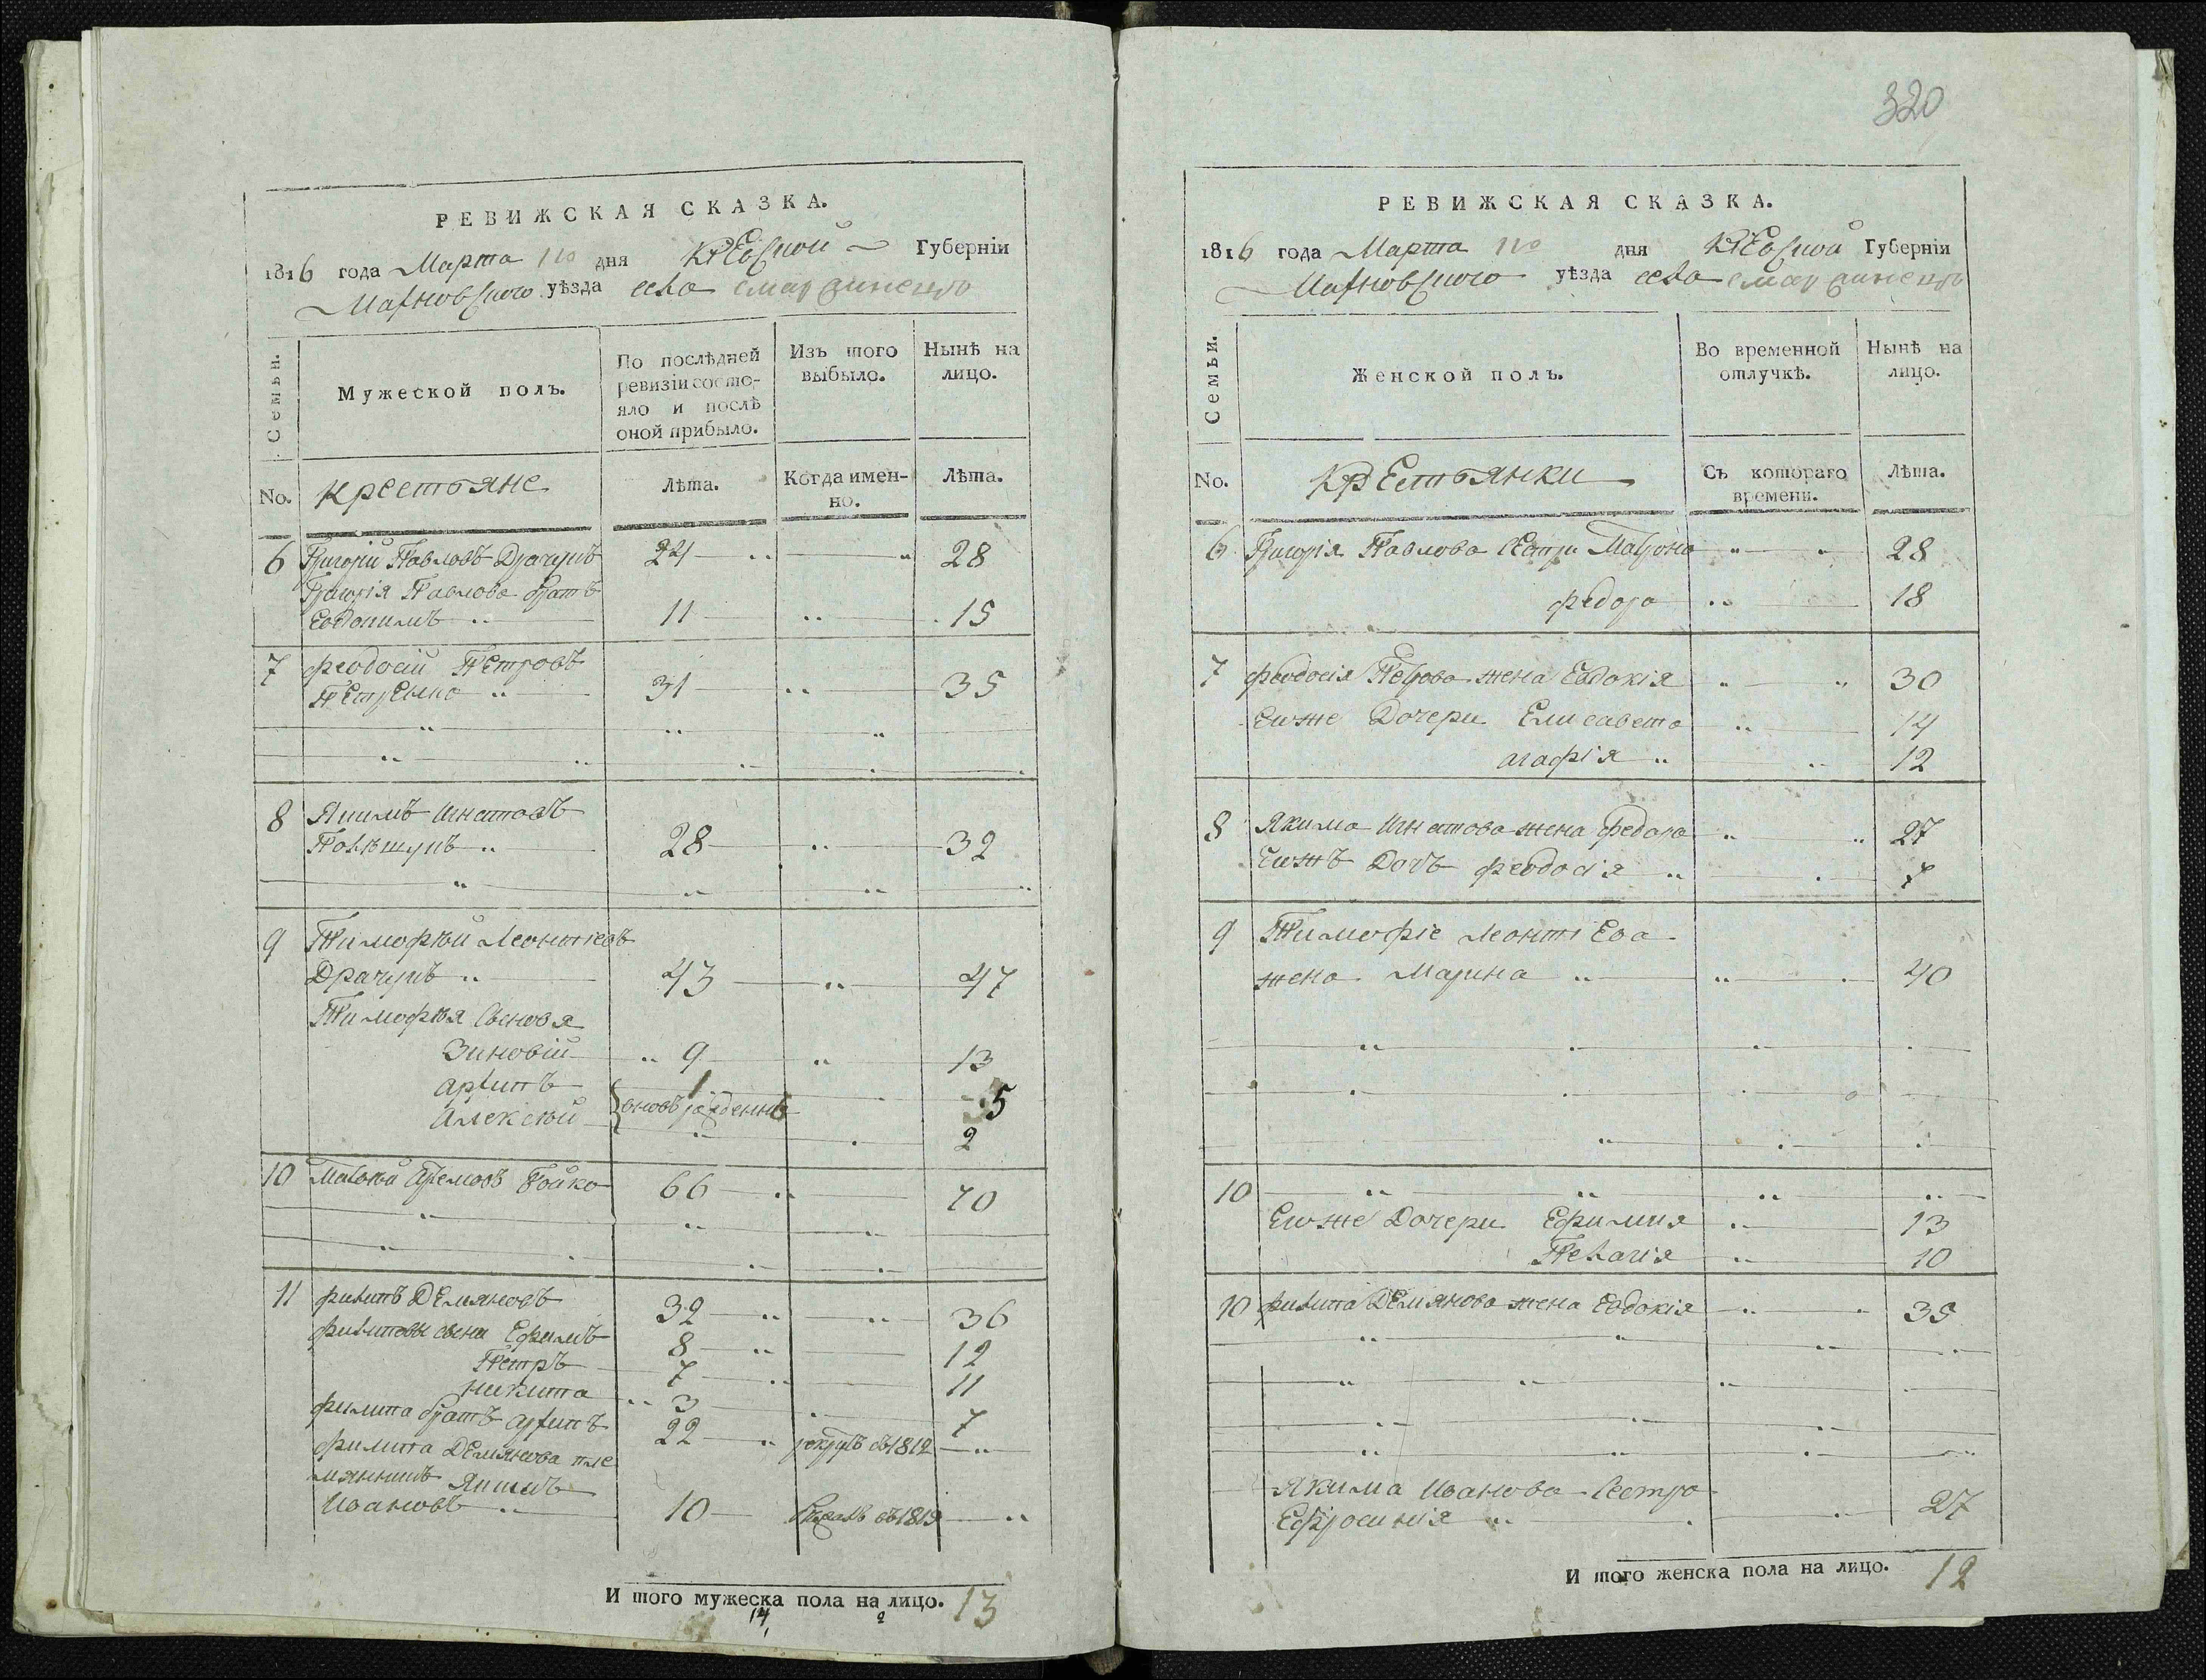 РЕВИЖСКАЯ СКАЗКА.
1816 года Марта дня Кіевской Губерніи
Махновского уѣзда села
Семьи.
Мужеской полъ.
По послѣдней ревизіи состо-
яло и послѣ оной прибыло.
Изъ того выбыло.
Нынѣ на лицо.
No. Крестьяне Лѣта. Когда имен-
но. Лѣта.
6 Григорій Павловъ Драчукъ 24 28
Григорія Павлова братъ
Евдокимъ 11 15
7 Феодосій Петровъ
31 35
8 Якимъ Игнатовъ
28 32
9 Тимофѣй Леонтіевъ
Драчукъ 43 47
Тимофѣя сыновя
Зиновій 9 13
Архипъ 1 5
Алексѣй вновь рожденны 2
10 Матвѣй Бойко 66 70
11 Филипъ Демяновъ 32 36
Филиповы сыни Ефимъ 8 12
Петръ 7 11
Никита 3 7
Филипа братъ Архипъ 22 рекрутъ въ 1812
Филипа Демянова пле
мянникъ Якимъ
Ивановъ 10 въ 1813
И того мужеска пола на лицо. 13
14 2
320
РЕВИЖСКАЯ СКАЗКА.
1816 года Марта дня Кіевской Губерніи
Махновского уѣзда села
Семьи.
Женской полъ.
Во временной отлучкѣ.
Нынѣ на лицо.
No. Крестьянки Съ котораго
времени. Лѣта.
6 Григорія Павлова сестри Матрона 28
Федора 18
7 Феодосія Петрова жена Евдокія 30
Егоже Дочери Елисавета 14
Агафія 12
8 Якима Игнатова жена Федора 27
Егожъ Дочь Феодосія 7
9 Тимофіе Леонтіева
жена Марина 40
10
Егоже Дочери Ефимия 13
Пелагія 10
10 Филипа Демянова жена Евдокія 35
Якима Иванова Сестра
Ефросинія 27
И того женска пола на лицо. 12